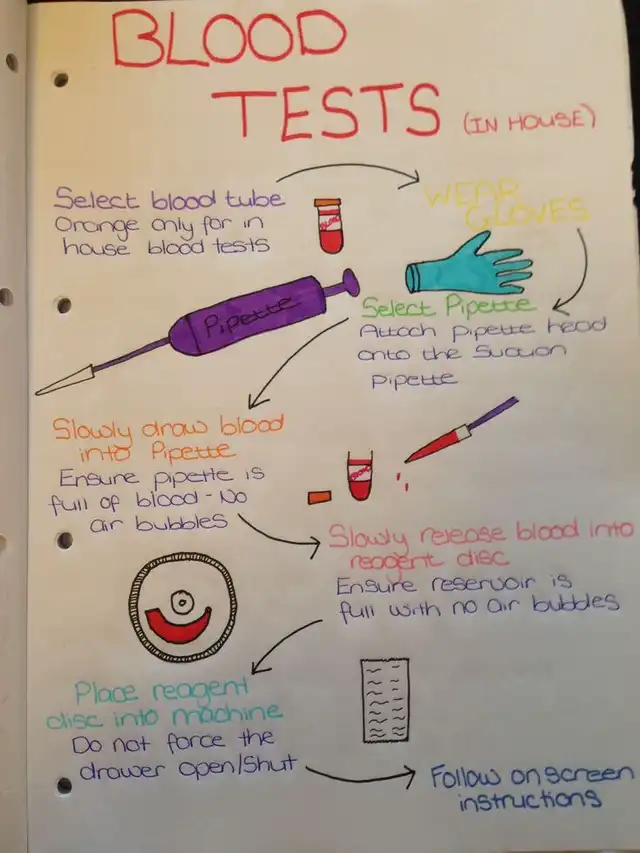 BLOOD
TESTS (IN HOUSE)
Select blood tube
Orange only for in
house blood tests
WEAR
GLOVES
Pipette
Select Pipette
Attach pipette head
onto the suction
pipette
Slowly draw blood
into Pipette
Ensure pipette is
full of blood - No
air bubbles
Slowly release blood into
reagent disc
Ensure reservoir is
full with no air bubbles
Place reagent
disc into machine
Do not force the
drawer open/shut
Follow on screen
instructions